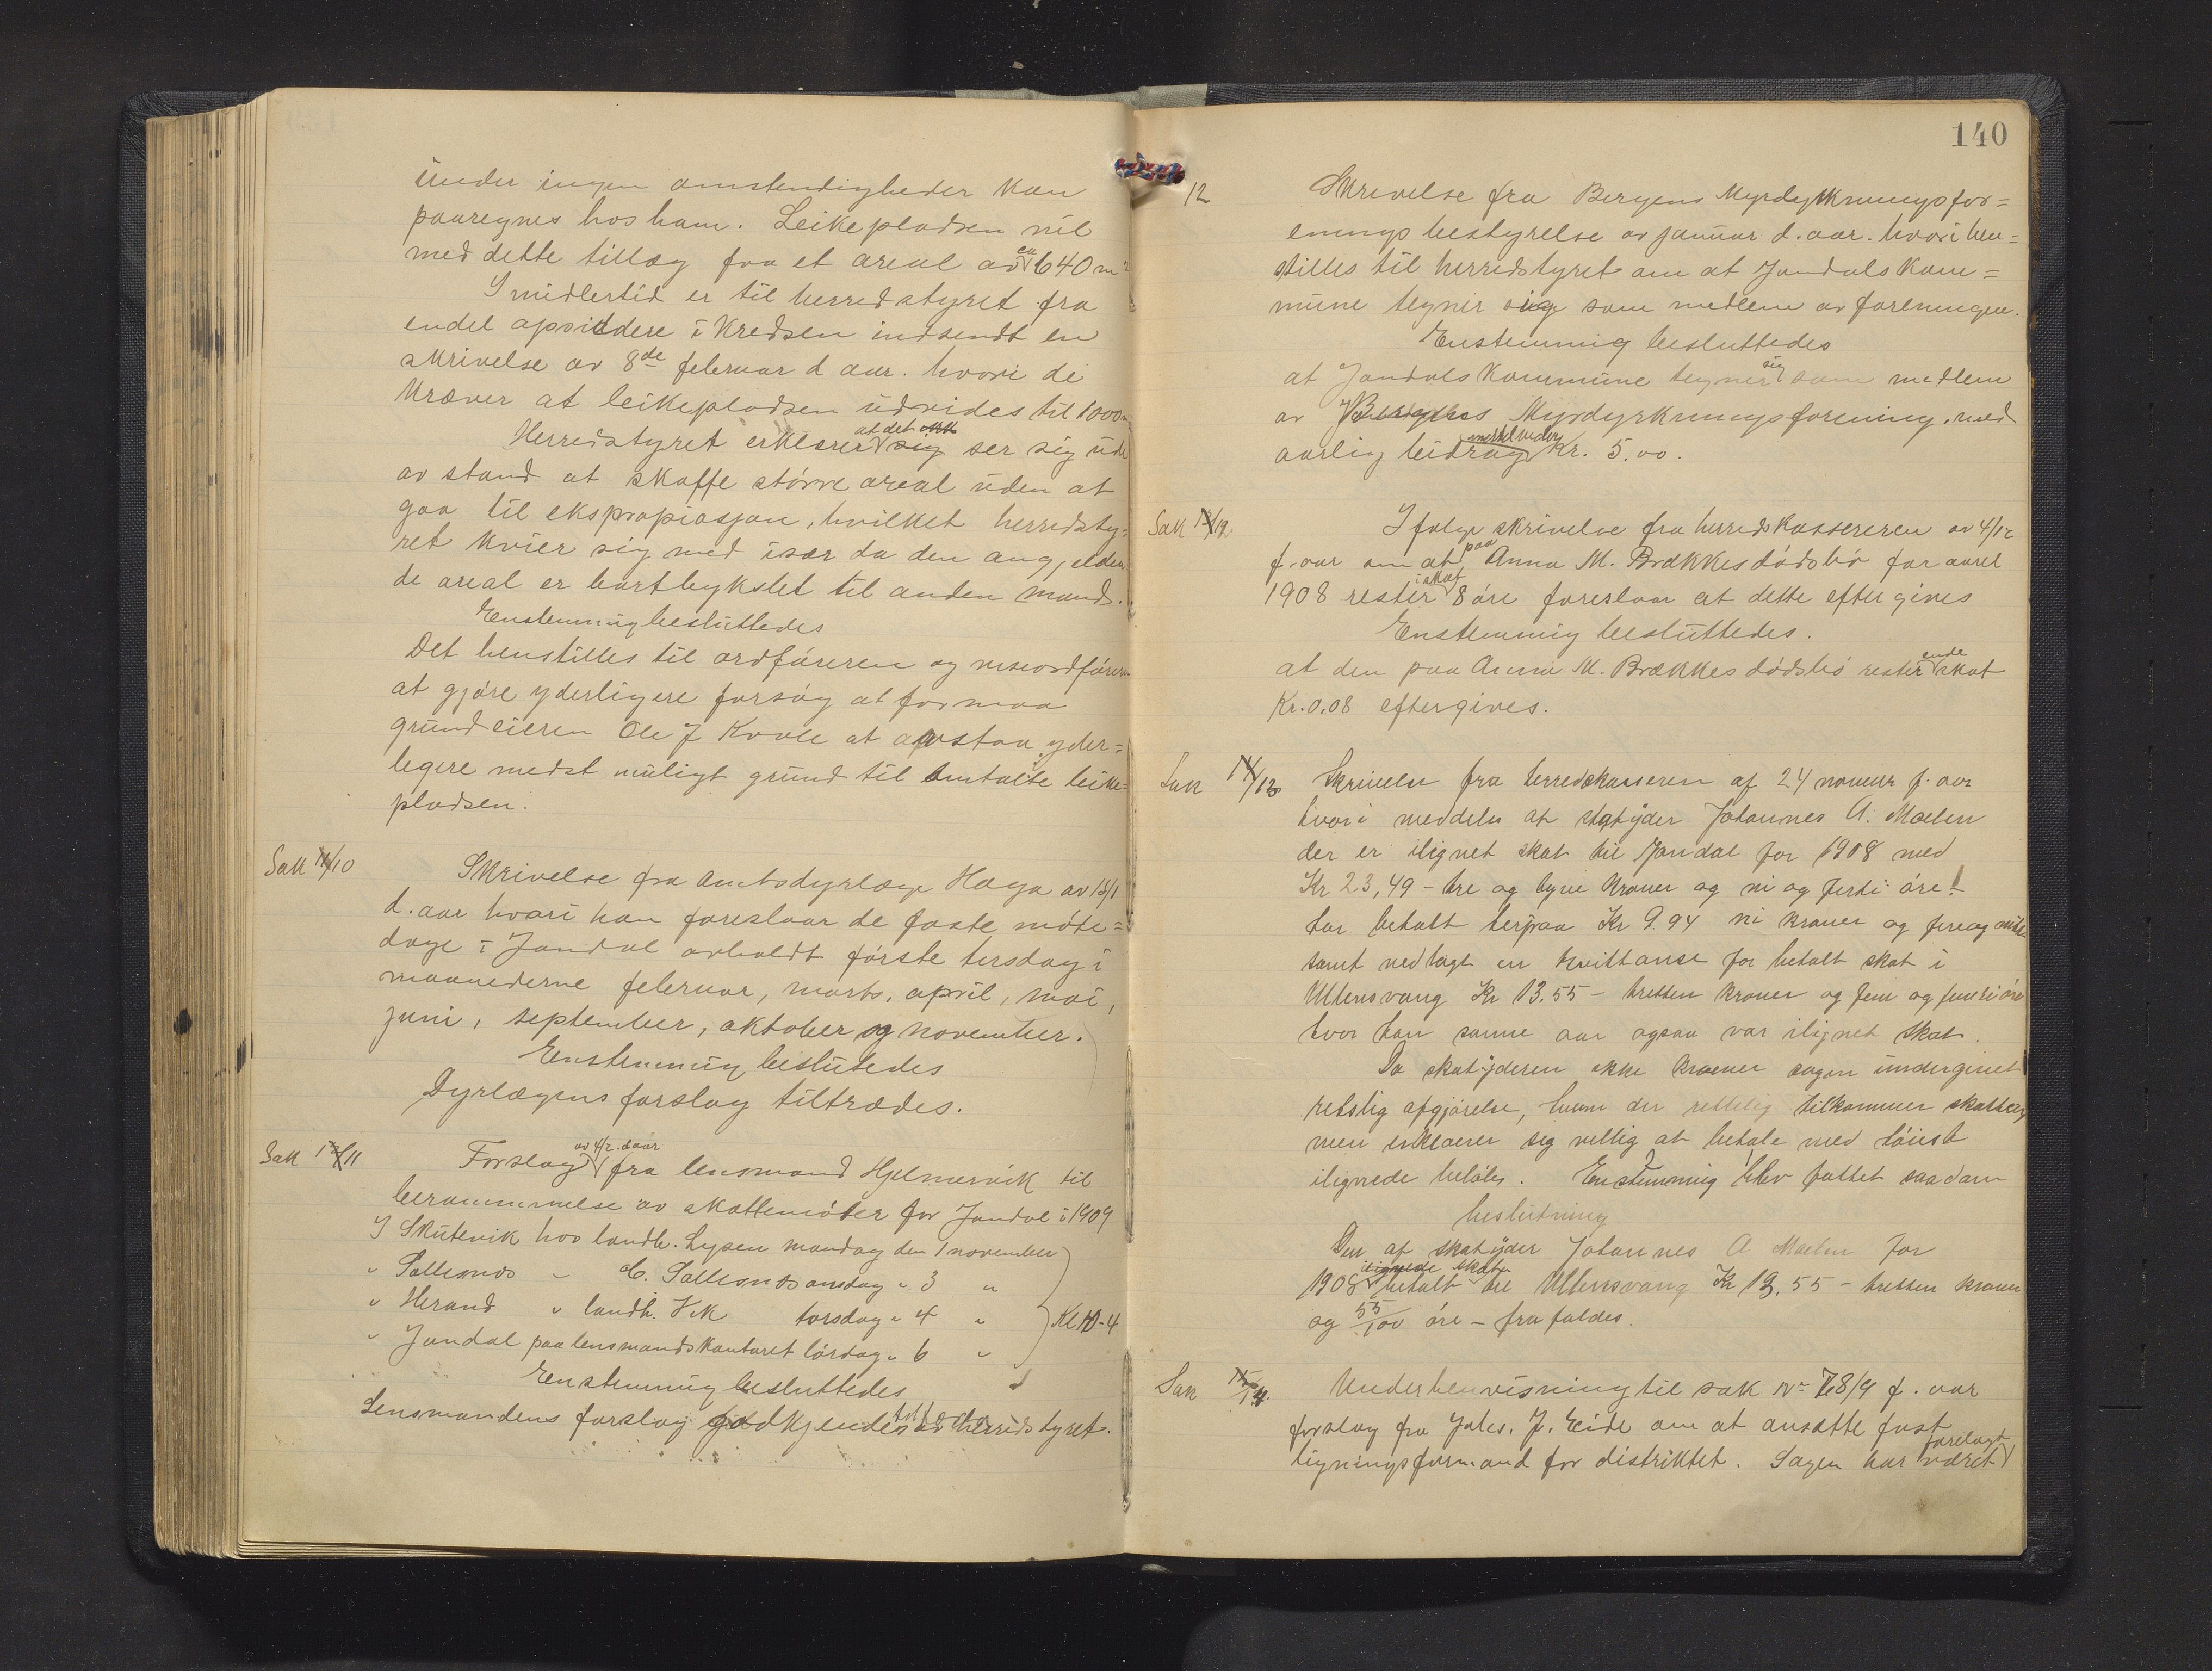 under ingen omstendigheder kan
paaregnes hos ham. Leikepladsen vil
med dette tillæg faa et areal av ca 640 m²
Imidlertid er til herredstyret fra
endel opsiddere i Kredsen indsendt en
skrivelse av 8de februar d aar. hvori de
Kræver at leikepladsen udvides til 1000 m
Herredstyret erklærer at det ser sig ude
av stand at skaffe større areal uden at
gaa til ekspropiasjon, hvilket herredsty=
ret kvier sig med især da den angjelden
de areal er bortbykslet til anden mand.
Enstemmig besluttedes
Det henstilles til ordføreren og viseordføreren
at gjøre yderligere forsøg at formaa
grundeieren Ole J Kvale at avstaa yder=
legere medst muligt grund til omtalte leike=
pladsen.
Sak 11/10
Skrivelse fra Amtsdyrlæge Haga av 13/1
d. aar hvori han foreslaar de faste møte=
dage i Jondal avholdt første tirsdag i
maanederne februar, marts, april, mai,
juni, september, oktober og november.
Enstemmig beslutedes
Dyrlægens forslag tiltrædes.
Sak 12/11
Forslag av 4/2. d aar fra lensmand Hjelmervik til
berammelse av skattemøter for Jondal i 1909
I Skutevik hos landh. Lysen mandag den 1 november
" Sollesnes " O. Sollesnes onsdag " 3 "
" Herand " landh. Vik torsdag " 4 "
Kl 10-4
" Jondal paa lensmandskontoret lørdag " 6 "
Enstemmig besluttedes
Lensmandens forslag godkjendes av herredstyret.
140
12
Skrivelse fra Bergens Myrdyrkningsfor=
enings bestyrelse av januar d. aar. hvori hen=
stilles til herredstyret om at Jondals Kom=
mune tegner sig som medlem av foreningen.
Enstemmig besluttedes
at Jondals Kommune tegner sig som medlem
av Bergens Myrdyrkningsforening, med
aarlig bidrag Kr. 5.00.
Sak 13/12
Ifølge skrivelse fra herredskassereren av 4/12
f. aar om at paa Anna M. Brækkes dødsbo for aaret
1908 rester i skat 8 øre foreslaar at dette eftergives
Enstemmig besluttedes.
at den paa Anna M. Brækkes dødsbo resterende skat
Kr. 0.08 eftergives.
Sak 14/13
Skrivelse fra herredskasseren af 24 november f. aar
hvori meddeles at skatyder Johannes A. Mælen
der er ilignet skat til Jondal for 1908 med
Kr 23,49 – tre og tyve kroner og ni og førti øre!
har betalt herpaa Kr 9.94 ni kroner og fire og nitti
samt vedlagt en kvittanse for betalt skat i
Ullensvang Kr 13.55 – tretten kroner og fem og femti øre
hvor han samme aar ogsaa var ilignet skat.
Da skatyderen ikke kræver sagen undergivet
retslig afgjørelse, hvem der rettelig tilkommer skatten,
men erklærer sig villig at betale med høiest
ilignede beløb. Enstemmig blev fattet saadan
beslutning
Den af skatyder Johannes A Mælen for
1908 ilignede skat betalt til Ullensvang Kr 13.55 – tretten kroner
og 55/100 øre – frafaldes.
Sak 15/14.
Under henvisning til sak Nr 78/9 f. aar
forslag fra Johs. J. Eide om at ansætte fast
ligningsformand for distriktet. Sagen har været forelagt